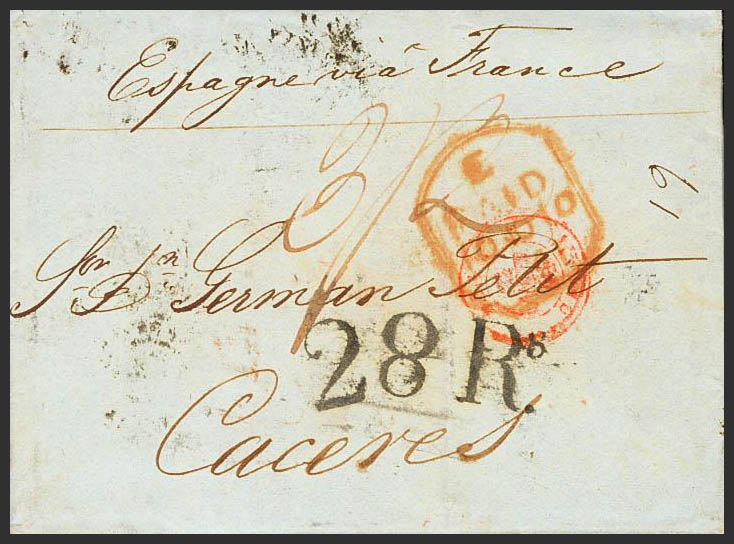 Espagne viâ France
3/2
E
PAID
19
Sor Dn German Petit
28 Rs
Caceres